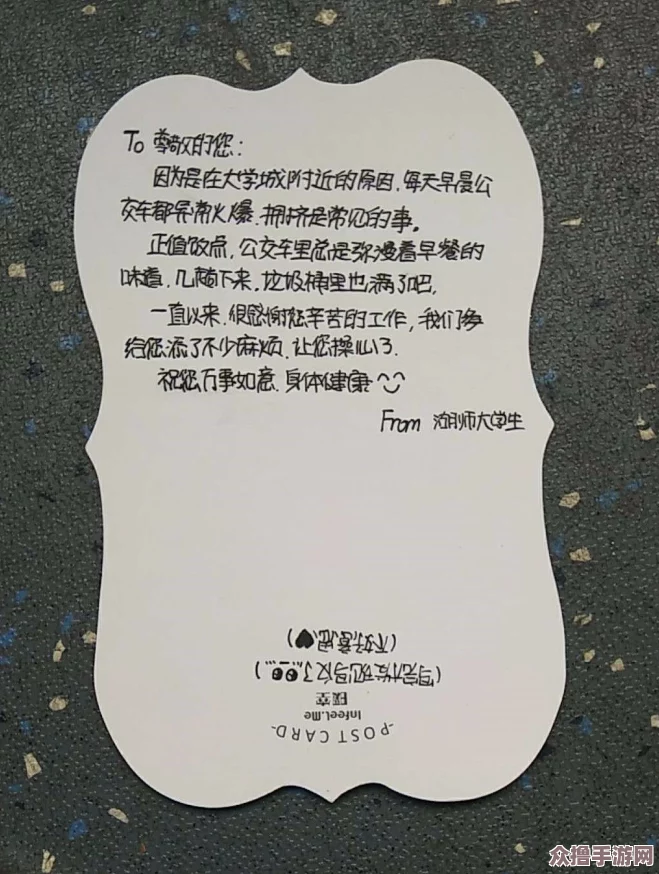 To 尊敬的您:
因为是在大学城附近的原因,每天早晨公
交车都异常火爆,拥挤是常见的事。
正值饭点,公交车里总是弥漫着早餐的
味道,几趟下来,垃圾桶里也满了吧,
一直以来,很感谢您辛苦的工作,我们
给您添了不少麻烦,让您操心了.
祝您万事如意,身体健康
From 师大学生
POST CARD
Infeel.Me
(写完才发现写反了...)
(不好意思♥)
众撸手游网